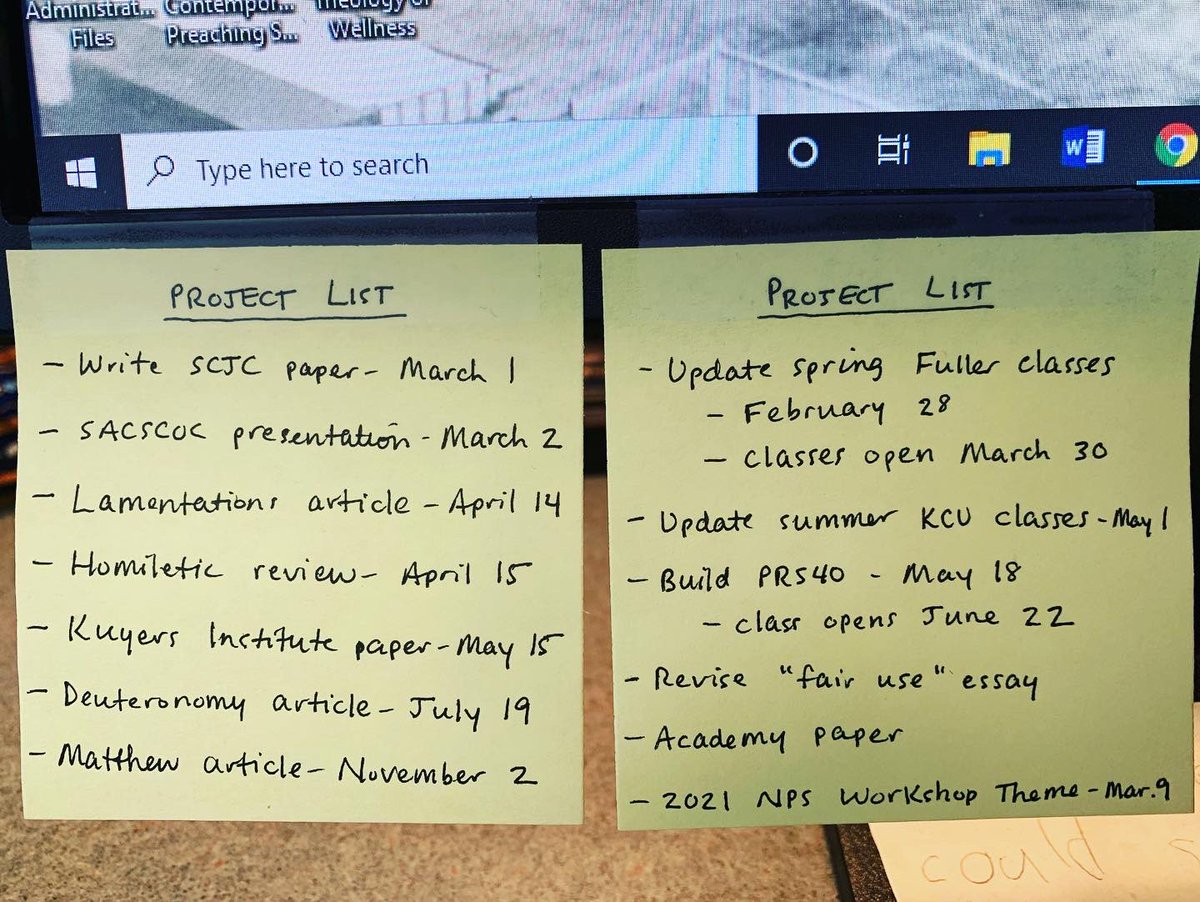 Administrat...
Files
Contempor...
Preaching S...
Theology of
Wellness
Type here to search
PROJECT LIST
- Write SCJC paper - March 1
- SACSCOC presentation - March 2
- Lamentations article - April 14
- Homiletic review - April 15
- Kuyers Institute paper - May 15
- Deuteronomy article - July 19
- Matthew article - November 2
PROJECT LIST
- Update spring Fuller classes
- February 28
- classes open March 30
- Update summer KCU classes - May 1
- Build PR540 - May 18
- class opens June 22
- Revise "fair use" essay
- Academy paper
- 2021 NPS Workshop Theme - Mar. 9
could